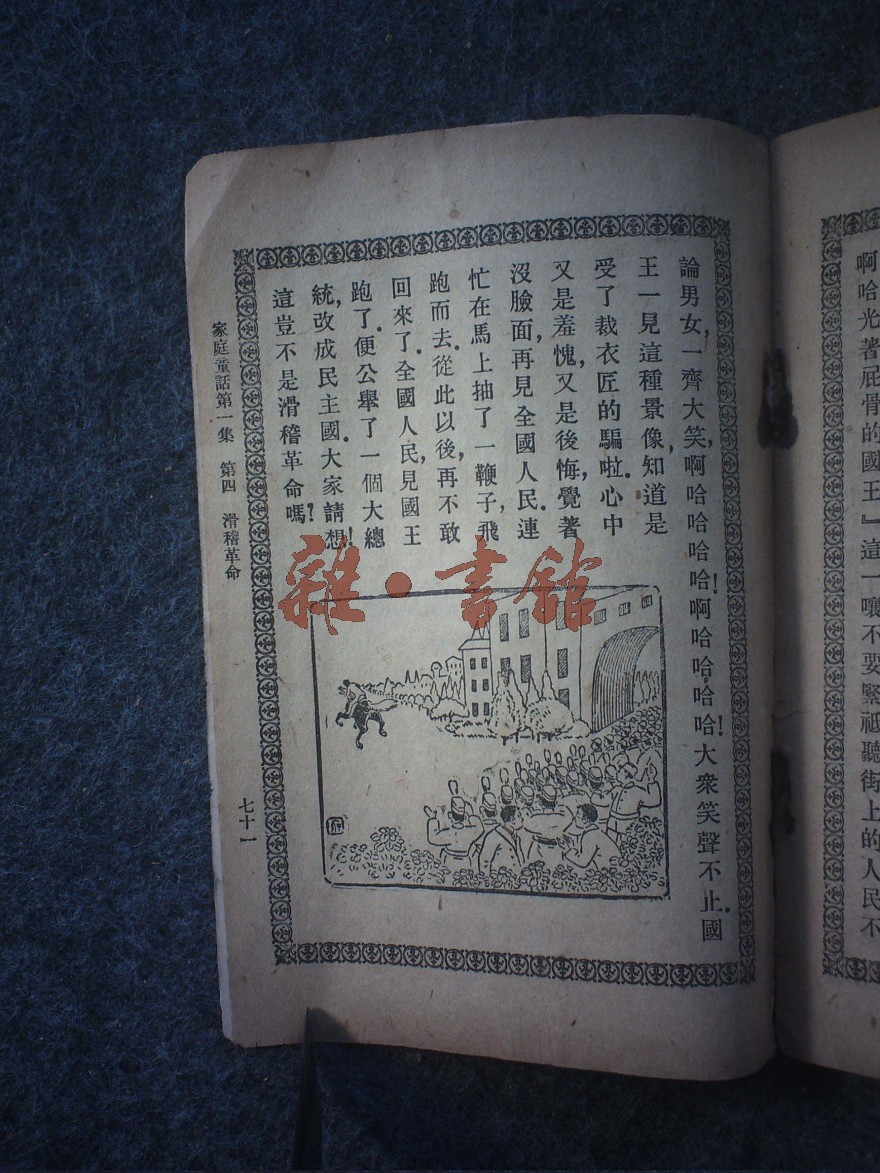 啊哈光著屁骨的國王』這一嚷不要緊祗聽街上的人民不
論男女,一齊大笑,啊哈哈哈哈!啊哈哈,哈哈!大衆笑聲不止.國
王一見這種景像,知道是
受了裁衣匠的騙啦.心中
又是羞愧,又是後悔,覺著
沒臉面,再見全國人民.連
忙在馬上抽了一鞭子,飛
跑而去.從此以後,再不敢
回來了.全國人民,見國王
跑了.便公舉了一個大總
統,改成民主國.大家請想!
這豈不是滑稽革命嗎?
家庭童話第一集 第四 滑稽革命
七十一
雜·書館